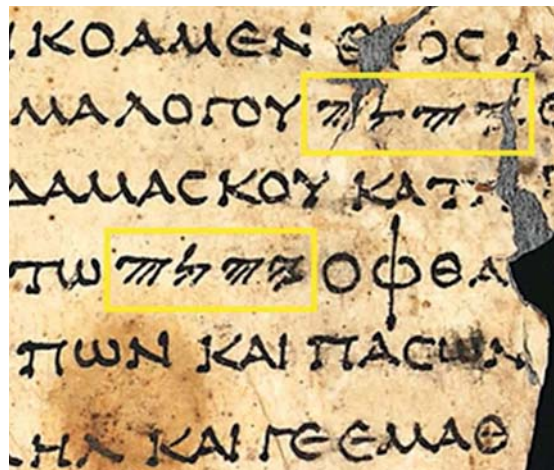 ΚΟΑΜΕΝ ΘΕΟϹ
ΜΑ ΛΟΓΟΥ 𐤉𐤄𐤅𐤄
ΔΑΜΑϹΚΟΥ ΚΑΤΑ
ΤΩ 𐤉𐤄𐤅𐤄 ΟΦΘΑ
ΠΩΝ ΚΑΙ ΠΑϹΩΝ
ΗΛ ΚΑΙ ΓΕ ΕΜΑΘ